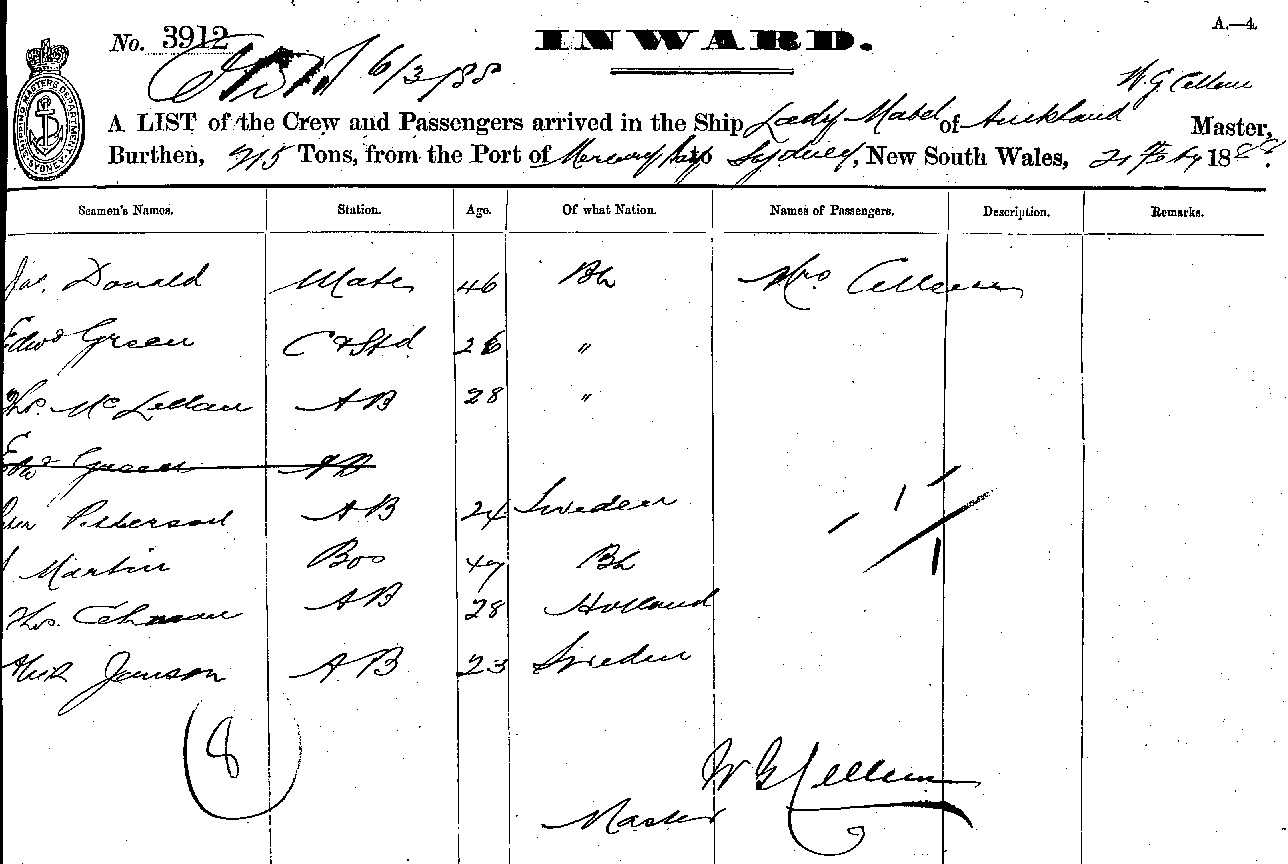 A.—4.
No. 3912
INWARD.
6/3/88
W. G. Cellem
A LIST of the Crew and Passengers arrived in the Ship Lady Mabel of Auckland Master,
Burthen, 215 Tons, from the Port of Mercury Bay to Sydney, New South Wales, 21 Feby 1888.
Seamen's Names. Station. Age. Of what Nation. Names of Passengers. Description. Remarks.
Jas. Donald Mate 46 Bh Mrs Cellem
Edwd Green C & Std 26 "
Thos. McLellan AB 28 "
Edwd Green AB
Peterson AB 24 Sweden
Martin Bos 47 Bh
Thos. AB 28 Holland
Janson AB 23 Sweden
8
W G Cellem
Master